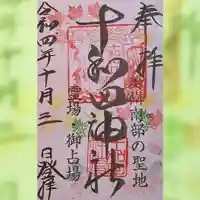 奉拝
南部の聖地
十和田神社
霊場 御占場
令和四年十月三日登拝